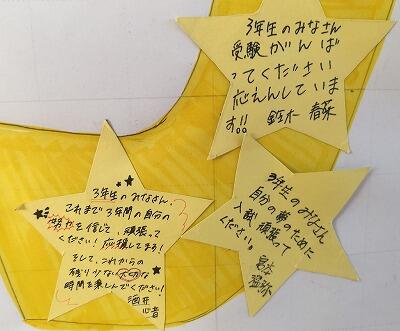 3年生のみなさん
受験がんば
ってください
応えんしていま
す!! 鈴木 春菜
3年生のみなさん.
これまで3年間の自分の
努力を信じて、頑張って
ください!応援してます!
そして、これからの
残り少ない大切な
時間を楽しんでください!
酒井
心音
3年生のみなさん
自分の夢のために
入試頑張って
ください。